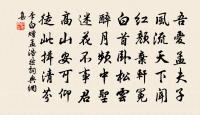 吾愛孟夫子
風流天下聞
紅顏棄軒冕
白首臥松雲
醉月頻中聖
迷花不事君
高山安可仰
徒此揖清芬
李白贈孟浩然詞典網
集